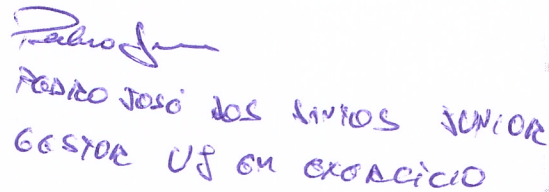 Pedro J
PEDRO JOSÉ DOS SANTOS JUNIOR
GESTOR UJ EM EXERCÍCIO